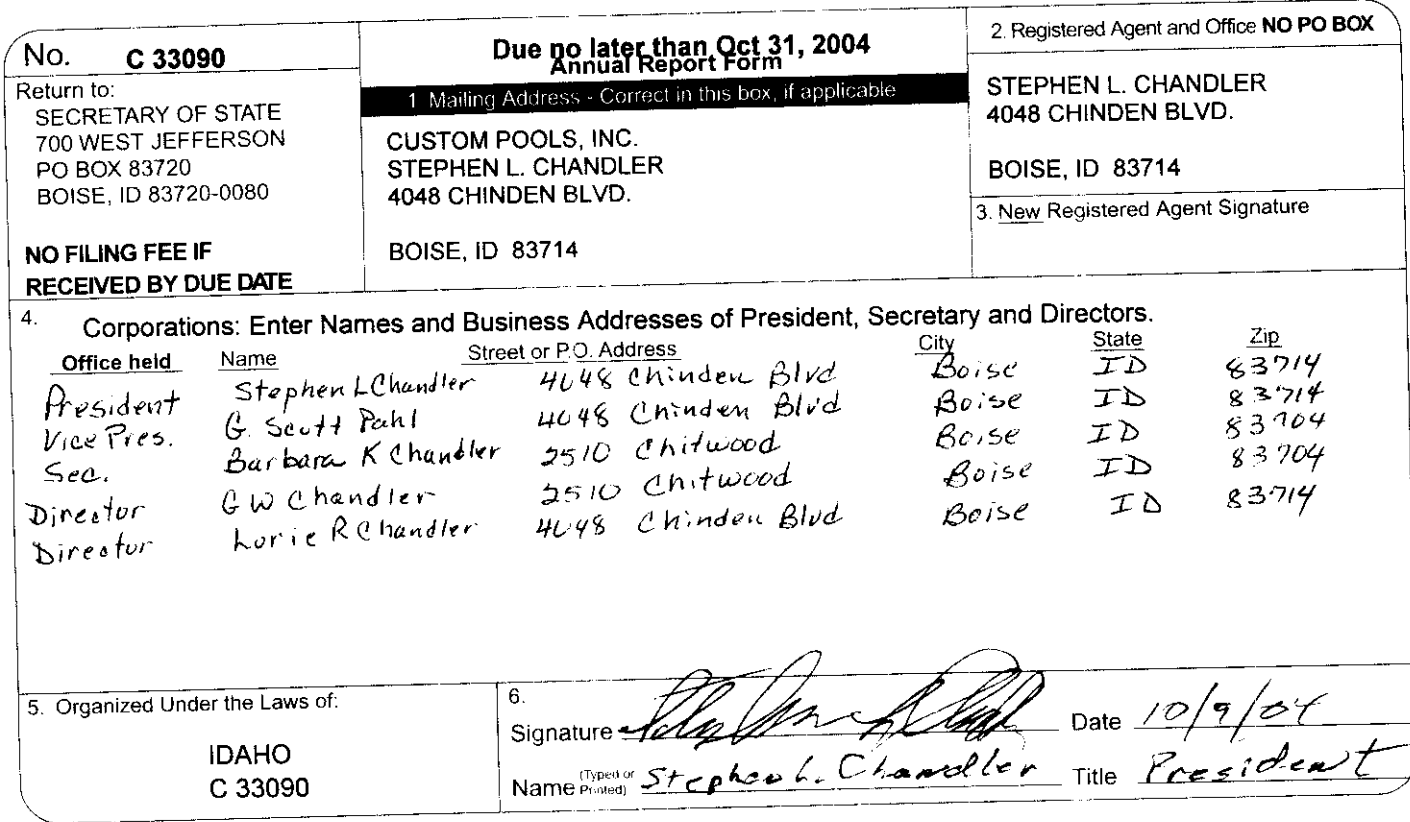 No. C 33090
Return to:
SECRETARY OF STATE
700 WEST JEFFERSON
PO BOX 83720
BOISE, ID 83720-0080
NO FILING FEE IF
RECEIVED BY DUE DATE
Due no later than Oct 31, 2004
Annual Report Form
1 Mailing Address - Correct in this box, if applicable
CUSTOM POOLS, INC.
STEPHEN L. CHANDLER
4048 CHINDEN BLVD.
BOISE, ID 83714
2. Registered Agent and Office NO PO BOX
STEPHEN L. CHANDLER
4048 CHINDEN BLVD.
BOISE, ID 83714
3. New Registered Agent Signature
4. Corporations: Enter Names and Business Addresses of President, Secretary and Directors.
Office held Name Street or P.O. Address City State Zip
President Stephen L Chandler 4048 Chinden Blvd Boise ID 83714
Vice Pres. G. Scott Pahl 4048 Chinden Blvd Boise ID 83714
Sec. Barbara K Chandler 2510 Chitwood Boise ID 83704
Director G W Chandler 2510 Chitwood Boise ID 83704
Director Lorie R Chandler 4048 Chinden Blvd Boise ID 83714
5. Organized Under the Laws of:
IDAHO
C 33090
6.
Signature Date 10/9/04
Name (Typed or Printed) Stephen L. Chandler Title President